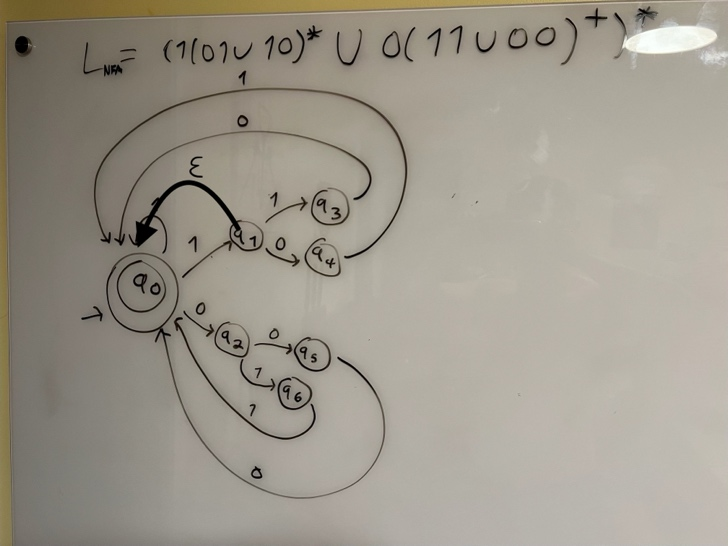 L_NFA = (1(01∪10)* ∪ 0(11∪00)⁺)*
1
0
ε
1 q3
q1
1 0 q4
q0
0
q2 0 q5
1 q6
1
0